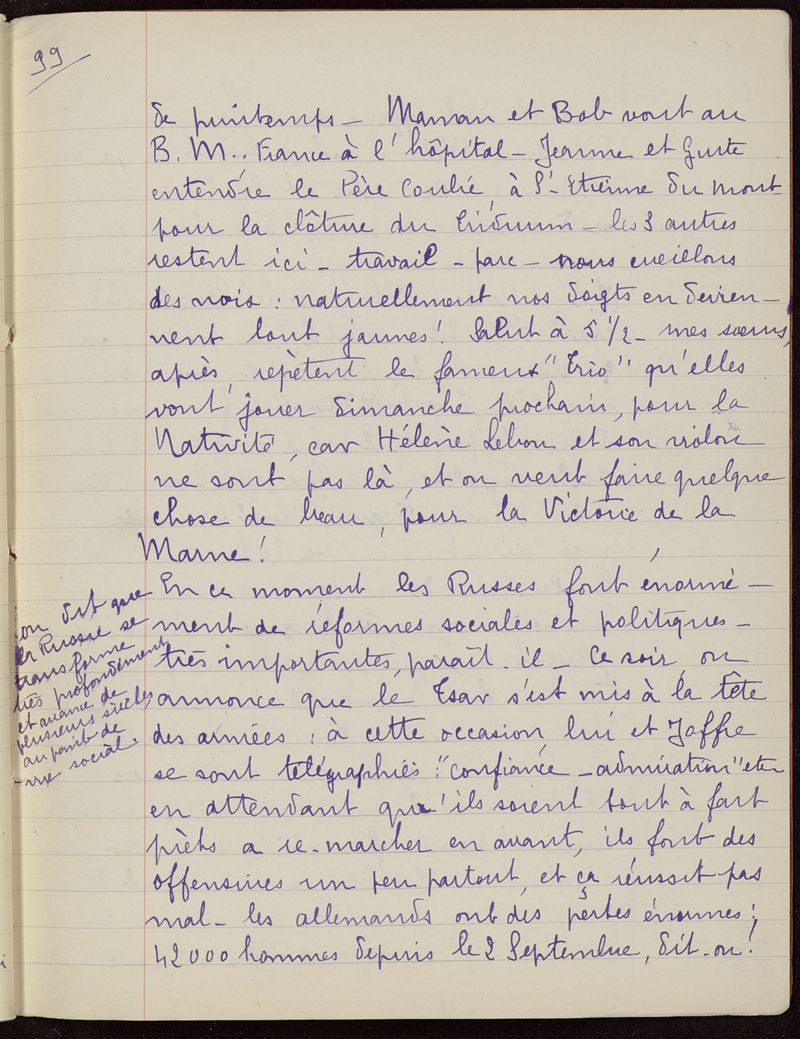 99
de printemps _ Maman et Bob vont au
B. M.. France à l'hôpital _ Jeanne et Guste
entendre le Père Coulié, à St-Etienne du mont
pour la clôture du Triduum _ les 3 autres
restent ici _ travail _ parc _ nous cueillons
des noix : naturellement nos doigts en devien-
nent tout jaunes! Salut à 5 1/2 _ mes sœurs,
après, repètent le fameux "Trio" qu'elles
vont jouer dimanche prochain, pour la
Nativité, car Hélène Lebon et son violon
ne sont pas là, et on veut faire quelque
chose de beau, pour la Victoire de la
Marne!
En ce moment les Russes font énormé-
ment de réformes sociales et politiques _
très importantes, paraît-il _ Ce soir, on
annonce que le Tsar s'est mis à la tête
des armées : à cette occasion lui et Joffre
se sont telégraphiés : "confiance _ admiration" etc
en attendant qu'ils soient tout à fait
prêts a re-marcher en avant, ils font des
offensives un peu partout, et ça réussit pas
mal _ les allemands ont des pertes énormes :
42 000 hommes depuis le 2 Septembre, dit-on!
on dit que
la Russie se
transforme
très profondément
et avance de
plusieurs siècles
au point de
vue social.